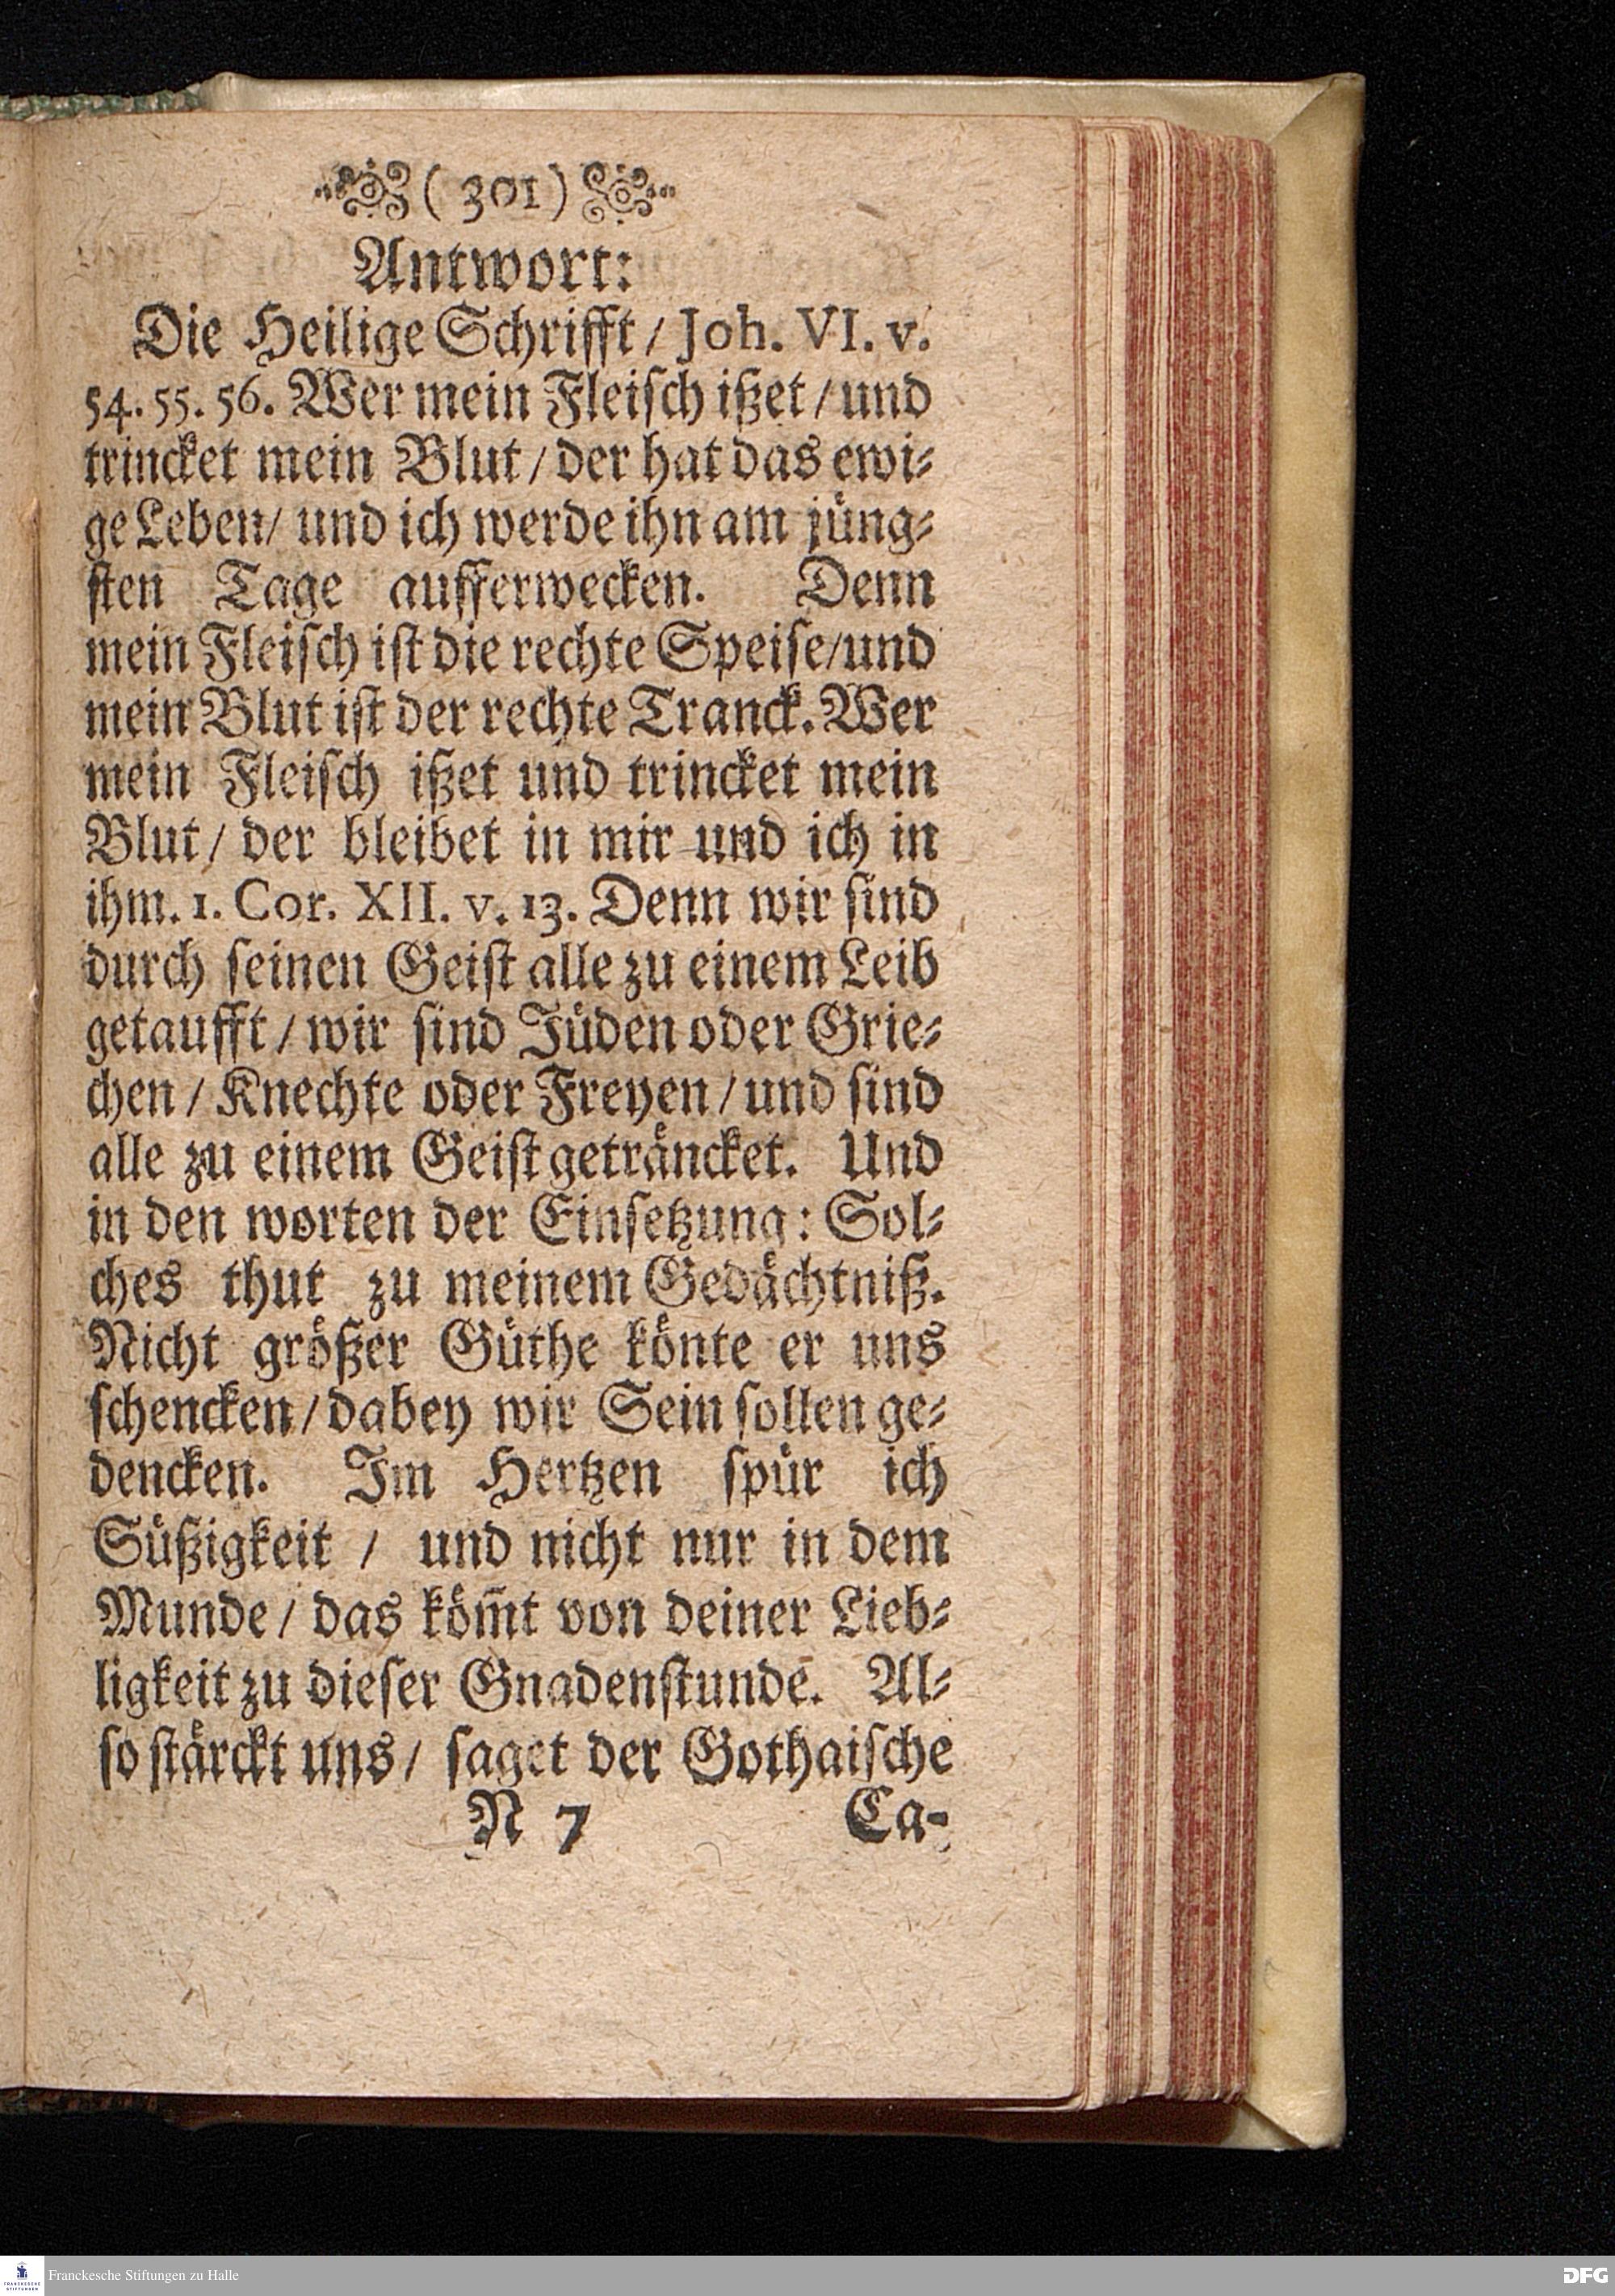 ( 301 )
Antwort:
Die Heilige Schrifft / Joh. VI. v.
54. 55. 56. Wer mein Fleisch ißet / und
trincket mein Blut / der hat das ewi-
ge Leben / und ich werde ihn am jüng-
sten Tage aufferwecken. Denn
mein Fleisch ist die rechte Speise / und
mein Blut ist der rechte Tranck. Wer
mein Fleisch ißet und trincket mein
Blut / der bleibet in mir und ich in
ihm. 1. Cor. XII. v. 13. Denn wir sind
durch seinen Geist alle zu einem Leib
getaufft / wir sind Jüden oder Grie-
chen / Knechte oder Freyen / und sind
alle zu einem Geist geträncket. Und
in den worten der Einsetzung: Sol-
ches thut zu meinem Gedächtniß.
Nicht größer Güthe könte er uns
schencken / dabey wir Sein sollen ge-
dencken. Im Hertzen spür ich
Süßigkeit / und nicht nur in dem
Munde / das köm̃t von deiner Lieb-
ligkeit zu dieser Gnadenstunde. Al-
so stärckt uns / saget der Gothaische
N 7 Ca-
FRANCKESCHE STIFTUNGEN
Franckesche Stiftungen zu Halle
DFG